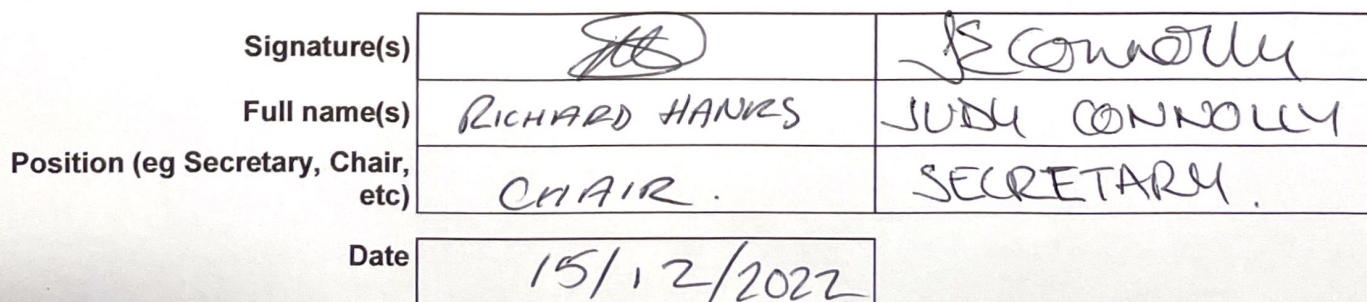 Signature(s) JE Connolly
Full name(s) RICHARD HANKS JUDY CONNOLLY
Position (eg Secretary, Chair,
etc) CHAIR. SECRETARY.
Date 15/12/2022